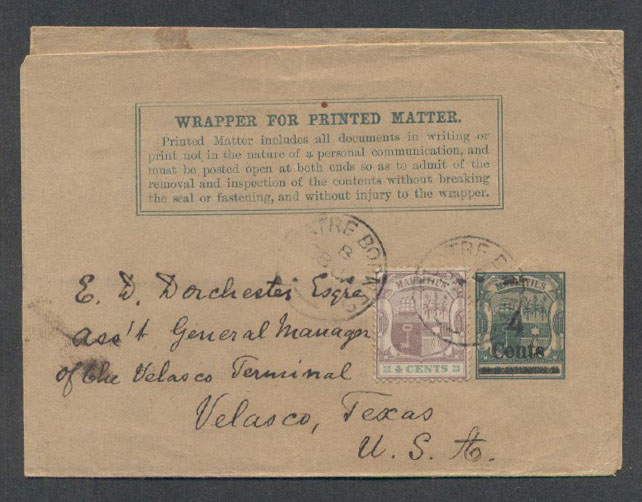 WRAPPER FOR PRINTED MATTER.
Printed Matter includes all documents in writing or
print not in the nature of a personal communication, and
must be posted open at both ends so as to admit of the
removal and inspection of the contents without breaking
the seal or fastening, and without injury to the wrapper.
E. D. Dorchester Esqre
Ass't General Manager
of the Velasco Terminal
Velasco, Texas
U. S. A.
MAURITIUS
4 CENTS
MAURITIUS
4
Cents